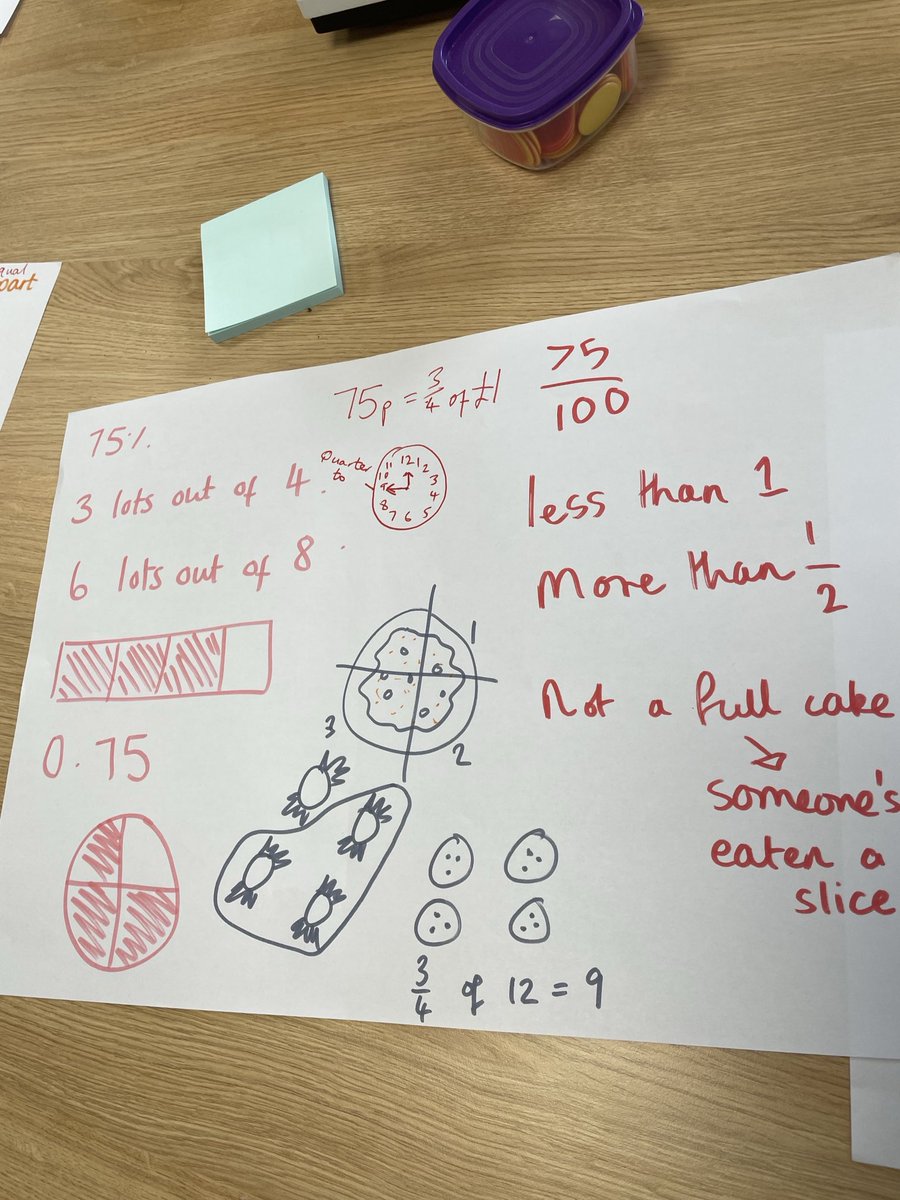 qual
part
75p = 3/4 of £1
75/100
75%
3 lots out of 4.
Quarter
to
12
1
2
3
4
5
6
7
8
9
10
11
6 lots out of 8
less than 1
More than 1/2
0.75
1
2
3
Not a full cake
someone's
eaten a
slice
3/4 of 12 = 9